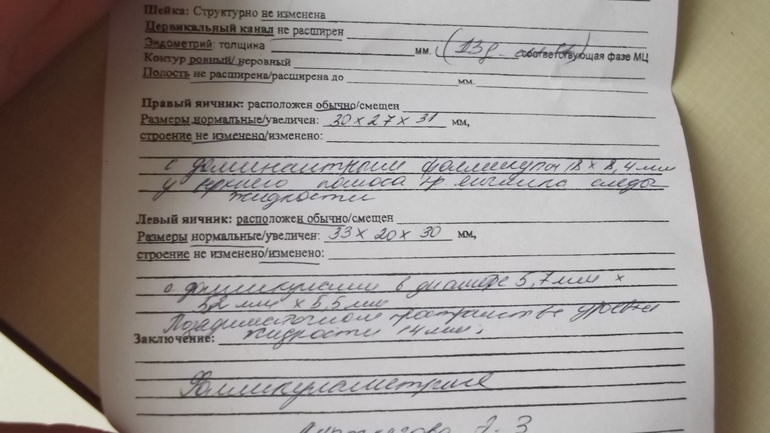 Шейка: Структурно не изменена
Цервикальный канал не расширен
Эндометрий: толщина мм. (13 соответствующая фазе МЦ
Контур ровный/неровный
Полость не расширена/расширена до мм.
Правый яичник: расположен обычно/смещен
Размеры нормальные/увеличен: 30 x 27 x 31 мм,
строение не изменено/изменено:
с доминантным фолликулом 18 x 8,4 мм
у полюса пр. яичника следы
жидкости
Левый яичник: расположен обычно/смещен
Размеры нормальные/увеличен: 33 x 20 x 30 мм,
строение не изменено/изменено:
с фолликулами в диаметре 5,7 мм x
5,2 мм x 5,5 мм
Позадиматочном пространстве уровень
Заключение: жидкости 14 мм.
Фолликулометрия